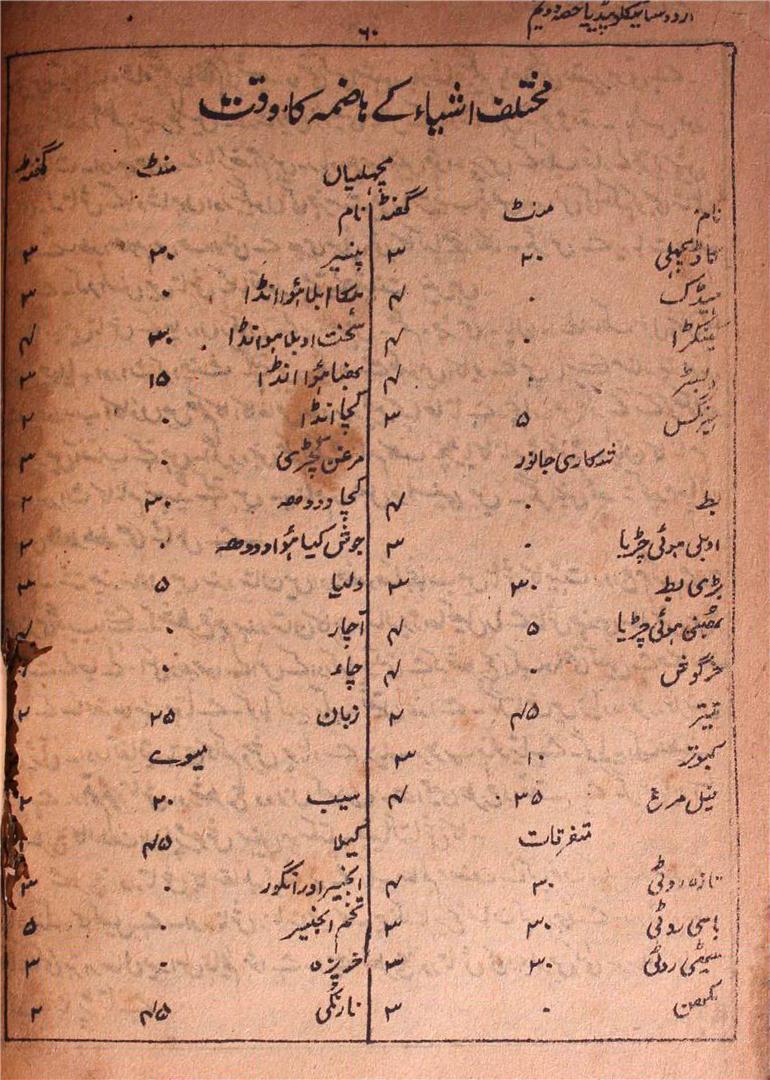 اردو سائیکلوپیڈیا حصہ دوئم
۶۰
مختلف اشیاء کے ہاضمہ کا وقت
مچھلیاں
نام منٹ گھنٹہ
کاڈ مچھلی ۳۰ ۳
مینڈک ۰ ۴
کیکڑا ۰ ۴
۰ ۴
۵ ۳
شکاری جانور
بط ۰ ۴
ابلی ہوئی چڑیا ۰ ۳
بڑی بط ۳۰ ۳
بھنی ہوئی چڑیا ۵ ۴
خرگوش ۰ ۴
تیتر ۴۵ ۲
کبوتر ۱۰ ۳
پیل مرغ ۳۵ ۴
متفرقات
تازہ روٹی ۳۰ ۴
باسی روٹی ۳۰ ۳
میٹھی روٹی ۳۰ ۳
مکھن ۰ ۳
نام منٹ گھنٹہ
پنیر ۳۰ ۳
ہلکا ابلا ہوا انڈا ۰ ۳
سخت اوبلا ہوا انڈا ۳۰ ۴
بھنا ہوا انڈا ۱۵ ۳
کچا انڈا ۰ ۲
مرغن کچڑی ۰ ۳
کچا دودھ ۳۰ ۲
جوش کیا ہوا دودھ ۰ ۲
دلیا ۵ ۳
آچار ۰ ۴
چاء ۰
زبان ۲۵ ۲
میوے
سیب ۳۰ ۲
کیلا ۴۵
انجیر اور انگور ۰ ۳
تخم انجیر ۰ ۵
خربزہ ۰ ۳
نارنگی ۴۵ ۲